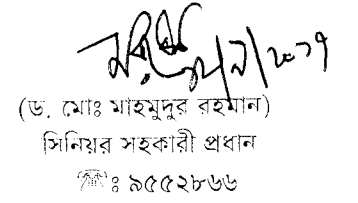 (ড. মোঃ মাহমুদুর রহমান)
সিনিয়র সহকারী প্রধান
☏ঃ ৯৫৫২৮৬৬